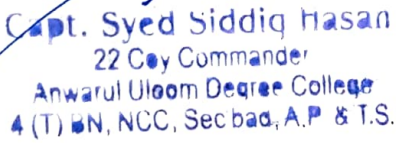 Capt. Syed Siddiq Hasan
22 Coy Commander
Anwarul Uloom Degree College
4 (T) BN, NCC, Secbad, A.P & T.S.